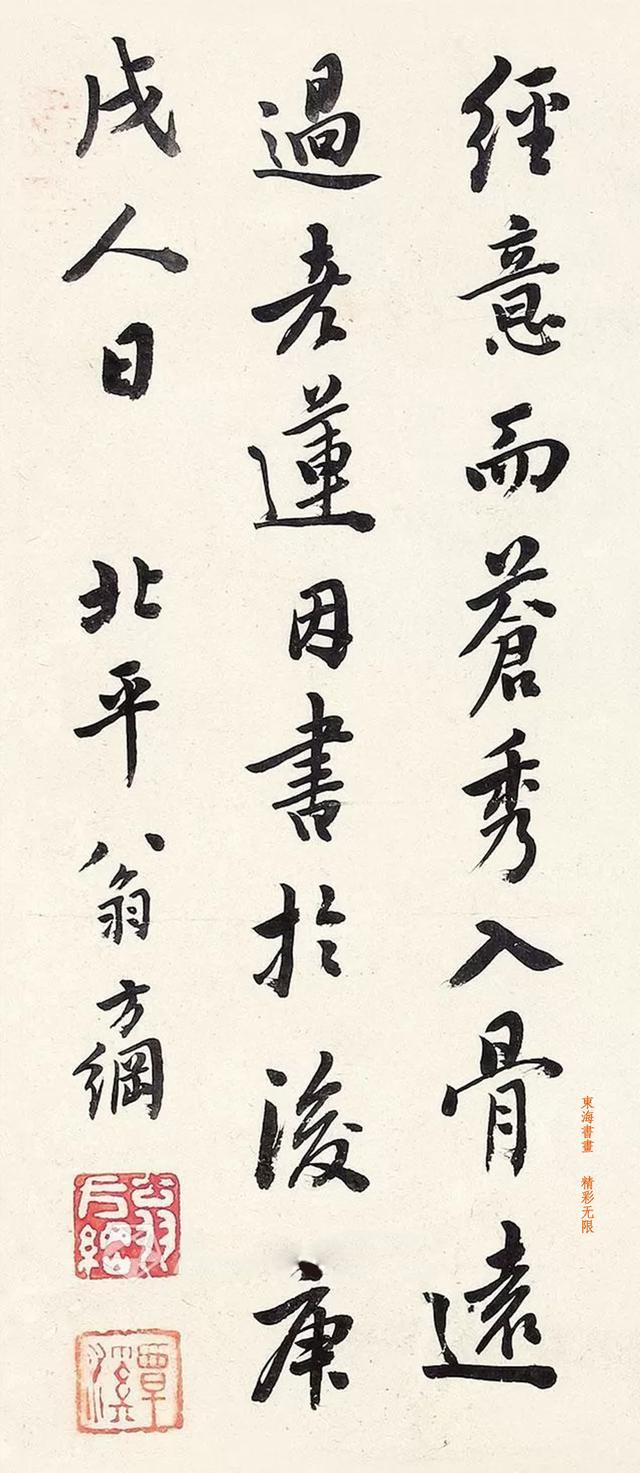 經意而蒼秀入骨遠
過老蓮因書於後庚
戌人日 北平翁方綱
翁方綱
覃溪
東海書畫 精彩无限